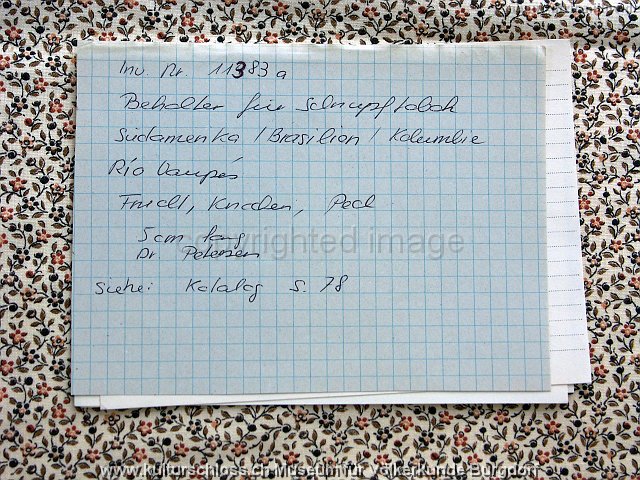 Inv. Nr. 11383a
Behälter für Schnupftabak
Südamerika / Brasilien / Kolumbie
Río Vaupés
Frucht, Knochen, Pech
5cm lang
Dr. Petersen
copyrighted image
Siehe: Katalog S. 78
www.kulturschloss.ch Museum für Völkerkunde Burgdorf